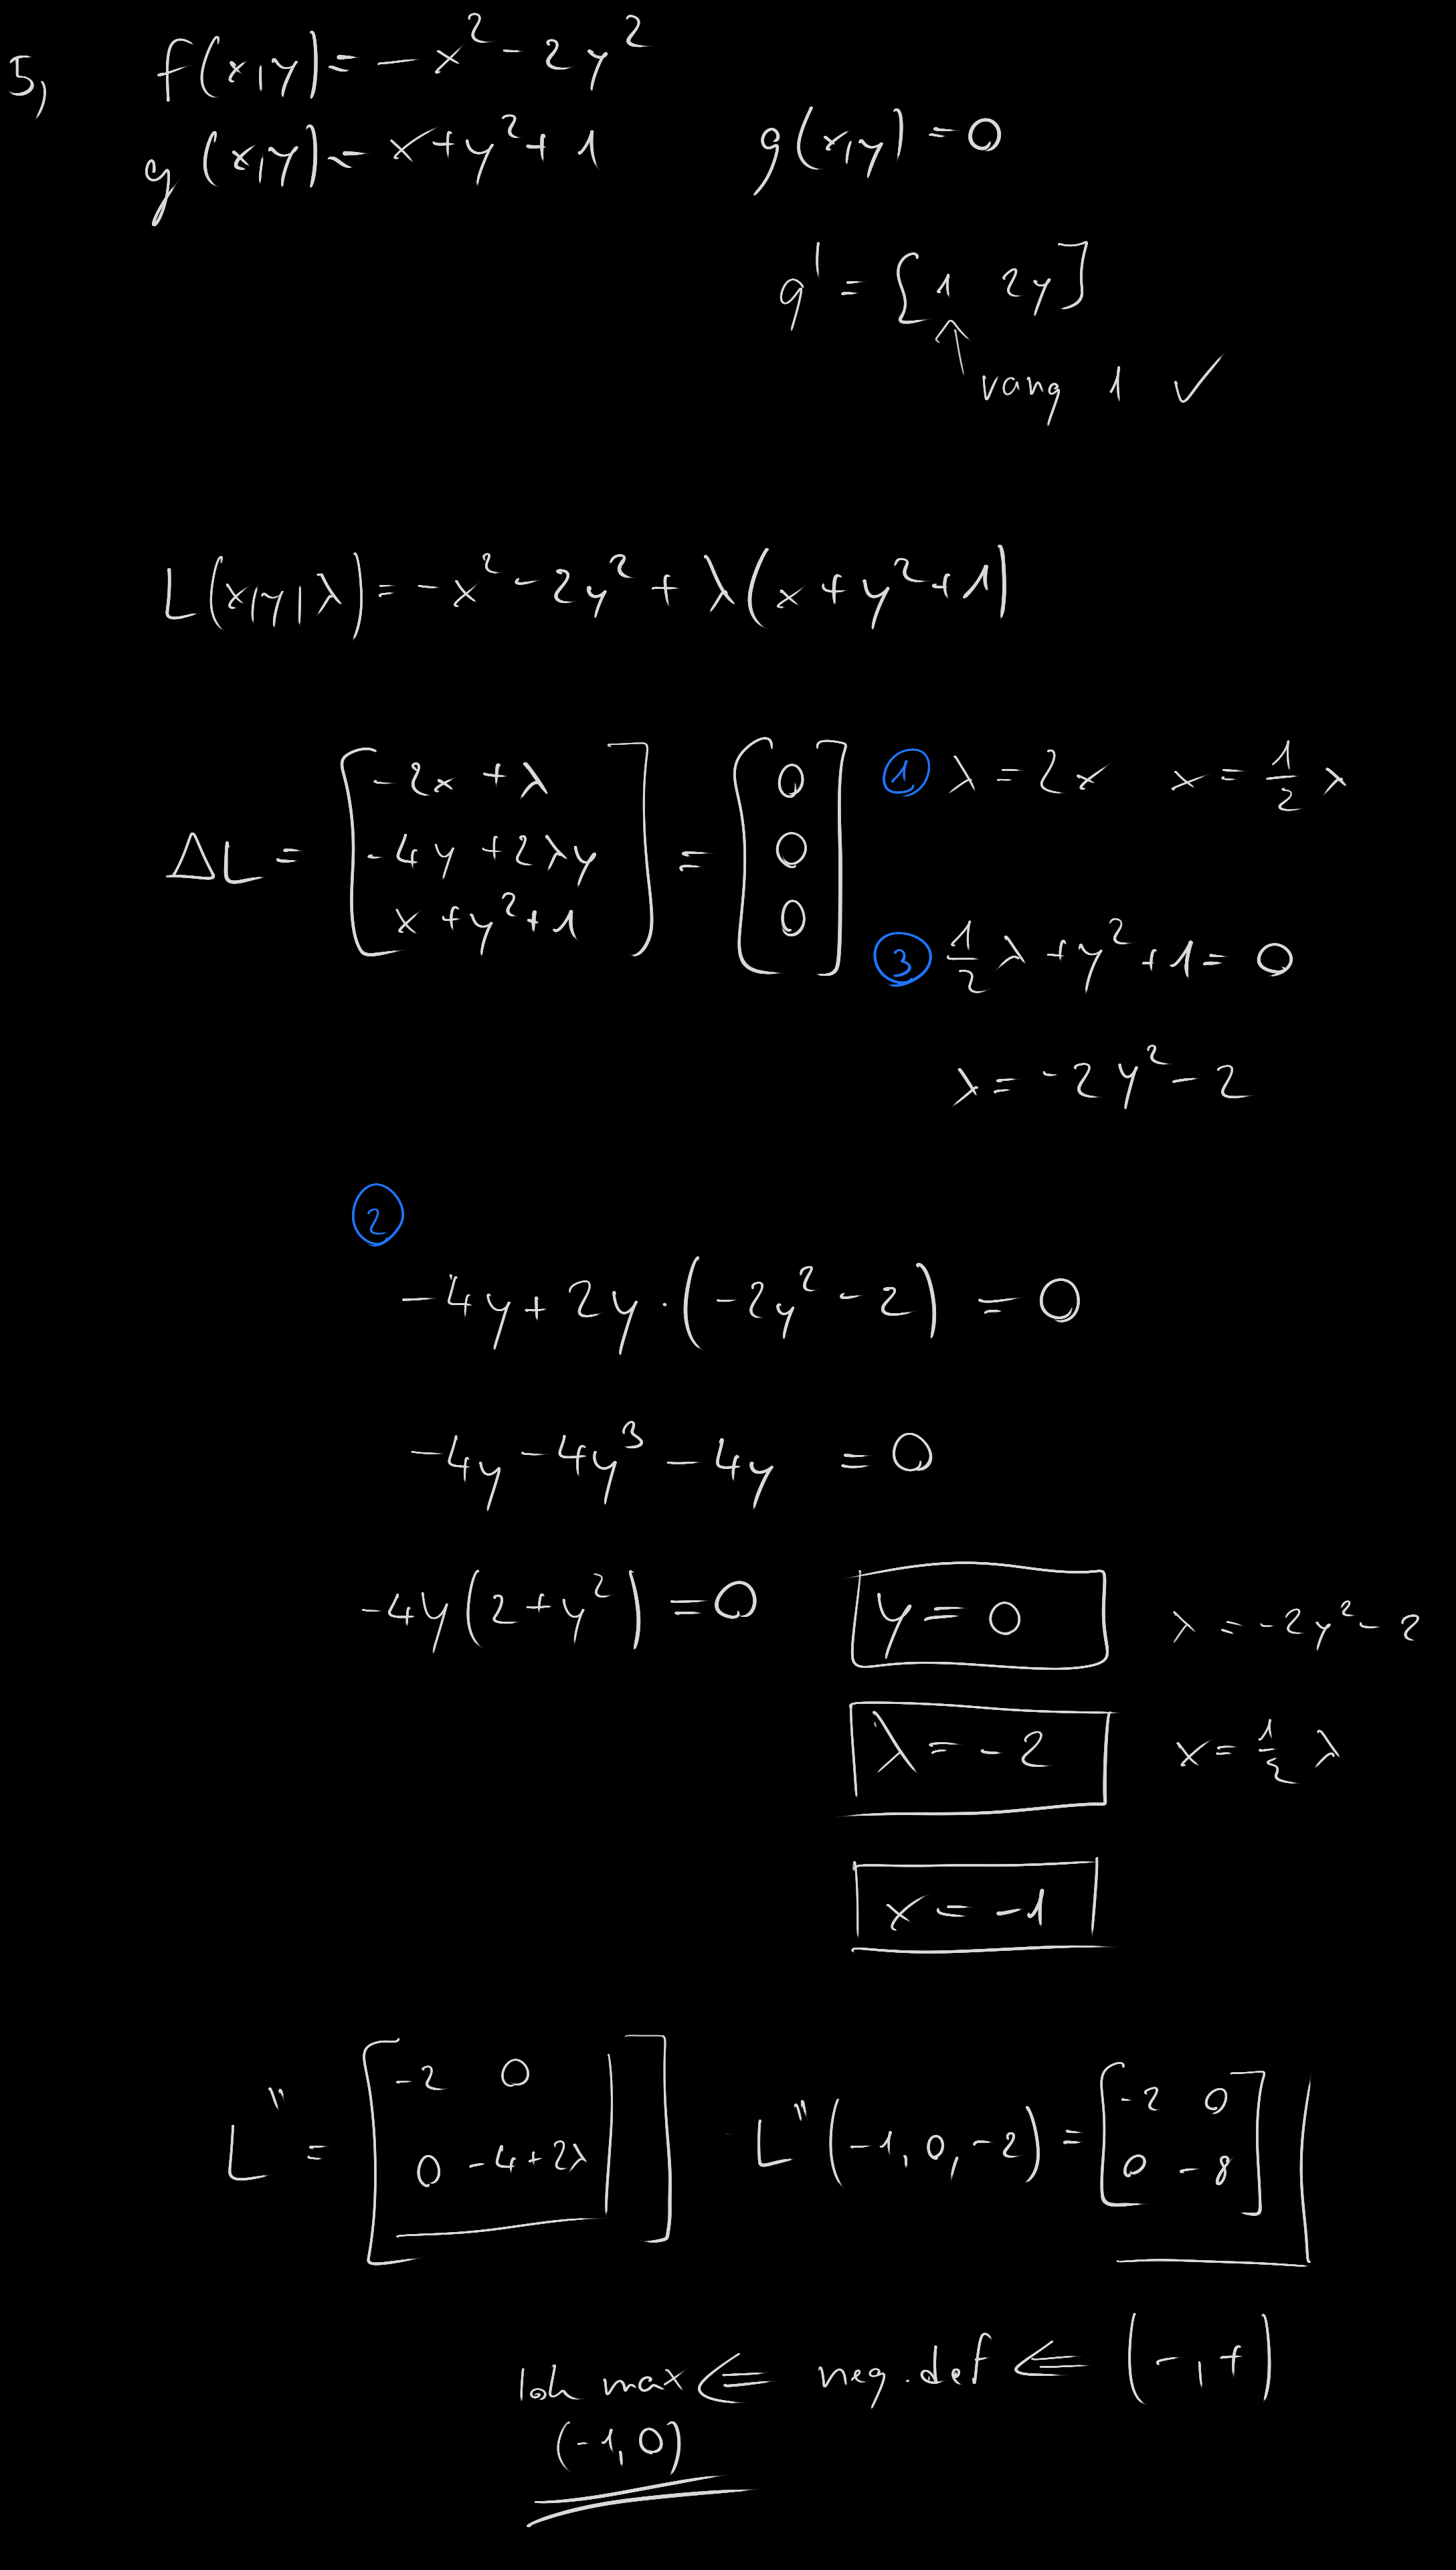 5, f(x,y) = -x² - 2y²
g(x,y) = x + y² + 1    g(x,y) = 0
g' = [1  2y]
↑ rang 1 ✓
L(x,y,λ) = -x² - 2y² + λ(x + y² + 1)
ΔL = [-2x + λ; -4y + 2λy; x + y² + 1] = [0; 0; 0]
① λ = 2x    x = 1/2 λ
③ 1/2 λ + y² + 1 = 0
λ = -2y² - 2
②
-4y + 2y · (-2y² - 2) = 0
-4y - 4y³ - 4y = 0
-4y(2 + y²) = 0    y = 0    λ = -2y² - 2
λ = -2    x = 1/2 λ
x = -1
L'' = [-2  0; 0  -4+2λ]    L''(-1, 0, -2) = [-2  0; 0  -8]
lok max ⇐ neg. def ⇐ (-, +)
(-1, 0)